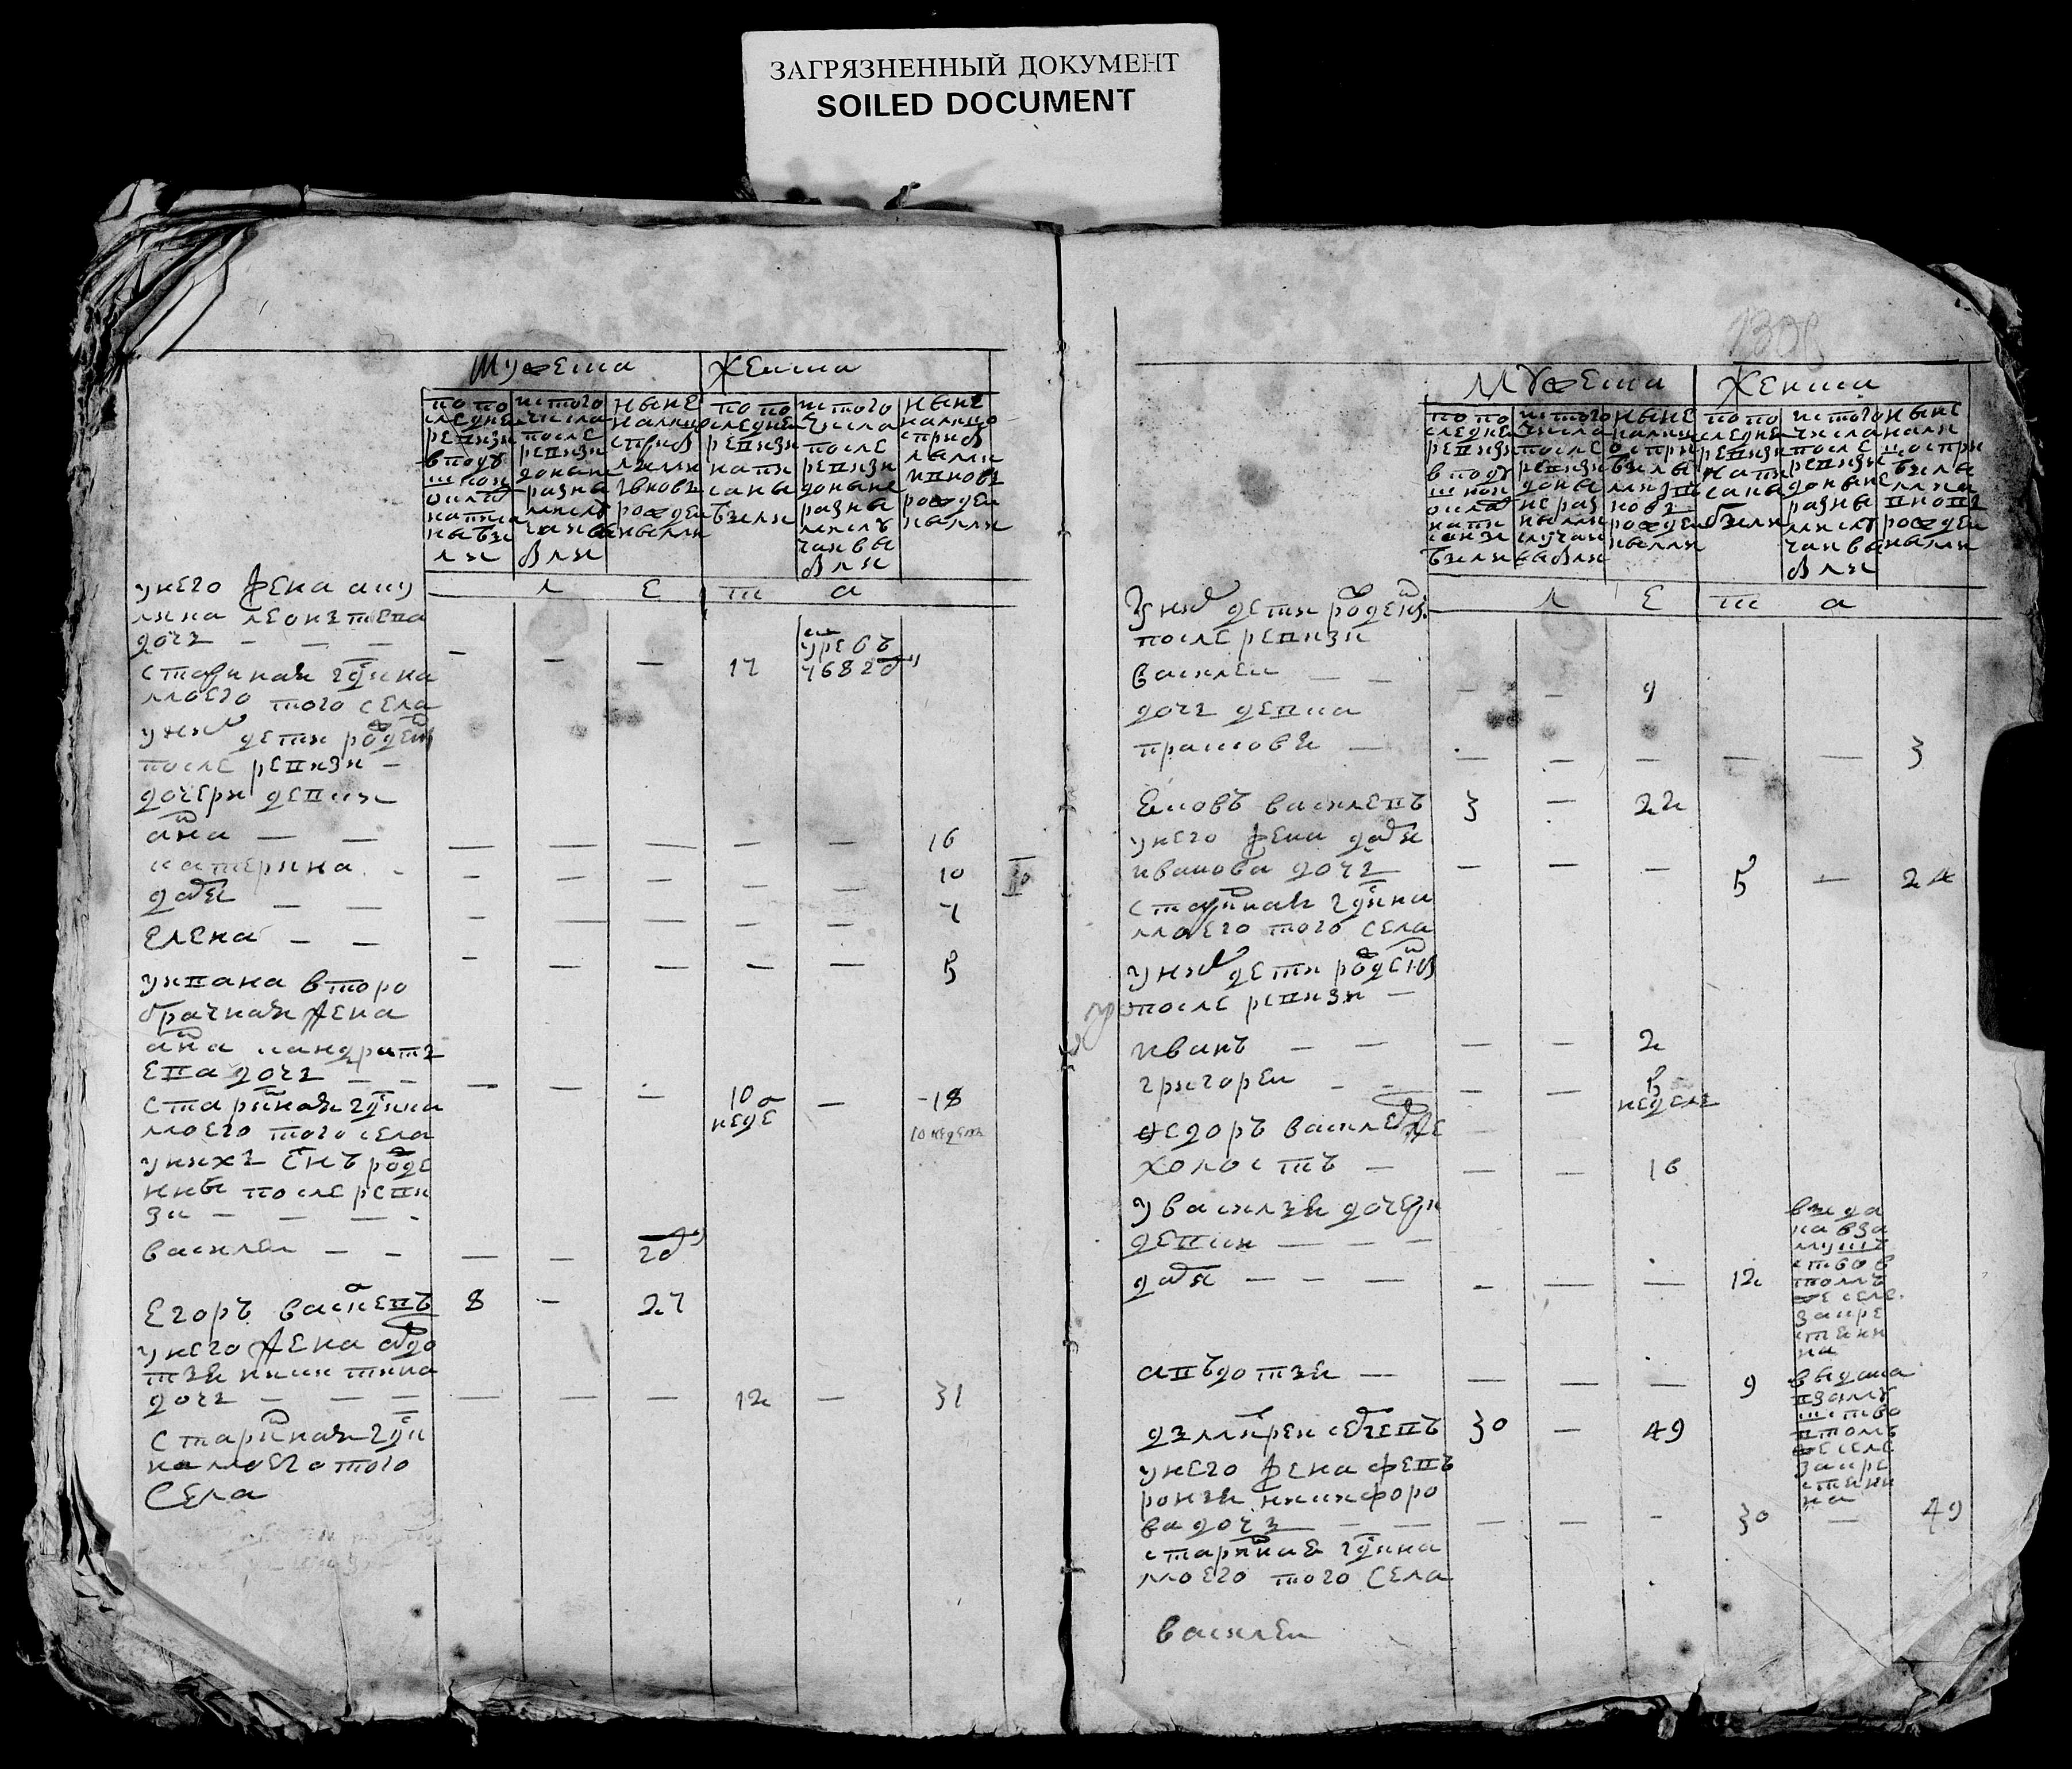 ЗАГРЯЗНЕННЫЙ ДОКУМЕНТ
SOILED DOCUMENT
Мужеска
Женска
по по
следне
ревизи
в поду
шном
окладе
написа
ны бы
ли
ис того
числа
после
ревизи
доныне
разны
ми слу
чаи вы
были
ныне
налицо
с приб
лыми
и вновь
рожден
ными
по по
следне
ревизи
напи
саны
были
ис того
числа
после
ревизи
доныне
разны
ми слу
чаи вы
были
ныне
налицо
с приб
лыми
и вновь
рожден
ными
л е т а
у него жена аку
лина леонтьева
дочь — — —
17
умре въ
1768 году
старинная гдина
моего того села
у них дети рожден
после ревизи —
дочери девки
анна — — 16
катерина 10
дарья — — 7
елена — — 5
у ивана второ
брачная жена
анна кандрать
ева дочь — —
10
неде
18
10 недель
старинная гдина
моего того села
у нихъ снъ рожде
нны после реви
зи — — —
василеи — — году
егоръ василевъ 8 — 27
у него жена авдо
тья никитина
дочь — — — 12 — 31
старинная гди
на моего того
села
1308
Мужеска
Женска
по по
следне
ревизи
в поду
шном
окладе
напи
саны
были
ис того
числа
после
ревизи
доны
не раз
ными
случаи
выбыли
ныне
налич
о с при
былы
ми и в
новь
рожден
ными
по по
следне
ревизи
напи
саны
были
ис того
числа
после
ревизи
доныне
разны
ми слу
чаи вы
были
ныне
нали
цо с при
былы
ми
и вновь
рожден
ными
л е т а
У них дети рожден
после ревизи
василеи — — 9
дочь девка
прасковья — 3
Яковъ василевъ 3 — 22
у него жена дарья
иванова дочь 5 — 24
старинная гдина
моего того села
у них дети рожден
после ревизи —
иванъ — — 2
григореи — — 5
недель
федоръ василев же
холостъ — 16
У василья дочери
девки — — —
дарья — — — 12
выда
на вза
мужъ
ство в
томъ
же селе
за кре
стьяни
на
авъдотья — 9
выдана
в заму
жство
в томъ
же селе
за кре
стьяни
на
дмитреи 30 — 49
у него жена февъ
ронья никифоро
ва дочь — — 30 — 49
старинная гдина
моего того села
василеи